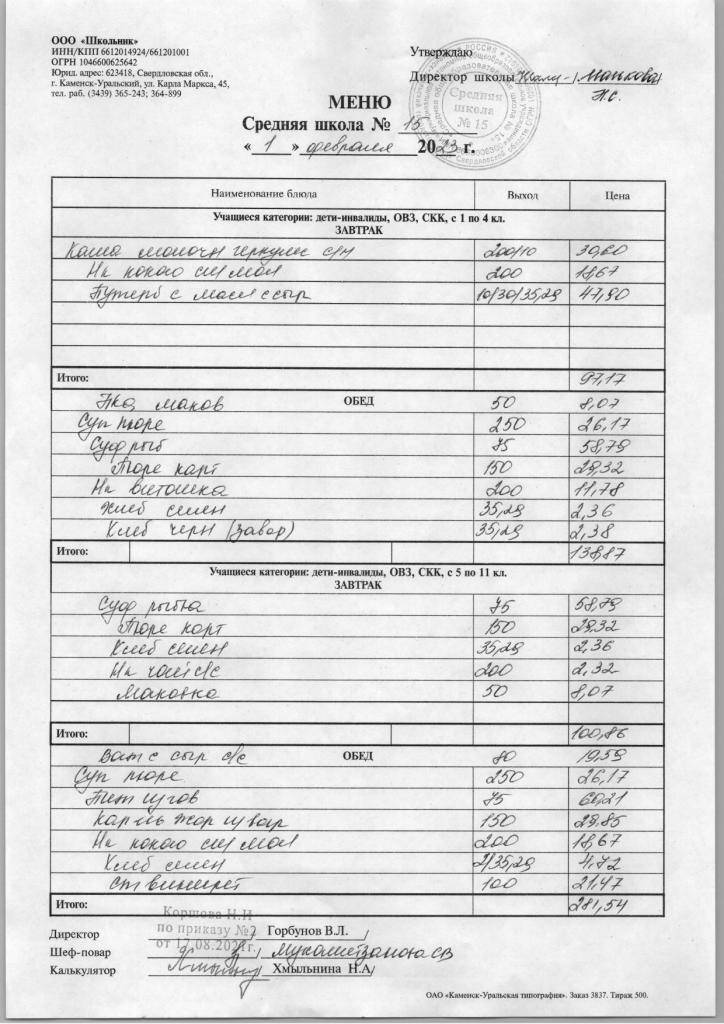 ООО «Школьник»
ИНН/КПП 6612014924/661201001
ОГРН 1046600625642
Юрид. адрес: 623418, Свердловская обл.,
г. Каменск-Уральский, ул. Карла Маркса, 45,
тел. раб. (3439) 365-243; 364-899
Утверждаю
Директор школы Манькова
Н.С.
Средняя
школа
№ 15
МЕНЮ
Средняя школа № 15
« 1 » февраля 2023 г.
Наименование блюда Выход Цена
Учащиеся категории: дети-инвалиды, ОВЗ, СКК, с 1 по 4 кл.
ЗАВТРАК
Каша молочн геркулес с/м 200/10 30,60
На какао сг мол 200 18,67
Бутерб с масл с сыр 10/30/35,29 47,90
Итого: 97,17
ОБЕД
маков 50 8,07
Суп пюре 250 26,17
Суф рыб 75 58,79
Пюре карт 150 29,32
На витошка 200 11,78
Хлеб семен 35,29 2,36
Хлеб черн (завар) 35,29 2,38
Итого: 138,87
Учащиеся категории: дети-инвалиды, ОВЗ, СКК, с 5 по 11 кл.
ЗАВТРАК
Суф рыбн 75 58,79
Пюре карт 150 29,32
Хлеб семен 35,29 2,36
На чай с/с 200 2,32
Маковка 50 8,07
Итого: 100,86
ОБЕД
Ват с сыр с/с 80 19,59
Суп пюре 250 26,17
75
150 29,85
На какао сг мол 200 18,67
Хлеб семен 2/35,29 4,72
винегрет 100 21,47
Итого: 281,54
Коршова Н.И
по приказу №2
от 17.08.2021г.
Директор / Горбунов В.Л. /
Шеф-повар / Мухаметзанова СВ
Калькулятор Хмыльнина Н.А/
ОАО «Каменск-Уральская типография». Заказ 3837. Тираж 500.